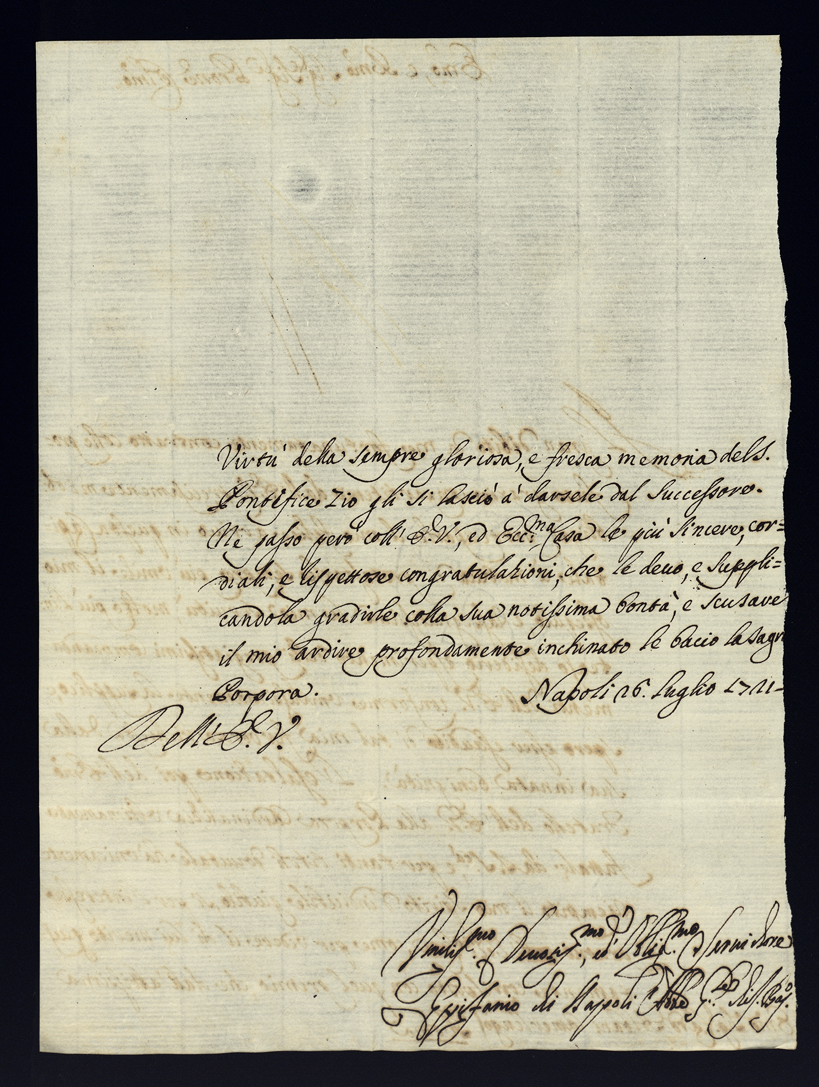 Virtù della sempre gloriosa, e fresca memoria del S.
Pontefice Zio gli si lasciò à darsele dal Successore.
Ne passo però coll' E. V., ed Ecc.ma Casa le più sincere, cor=
diali, e rispettose congratulazioni, che le devo, e suppli=
candola gradirle colla sua notissima bontà, e scusare
il mio ardire profondamente inchinato le bacio la sagr
Porpora. Napoli 26. Luglio 1721=
Dell' E. V.
Umilis.mo Devotis.mo, ed Oblig.mo Servidore
Epifanio di Napoli Abb.e